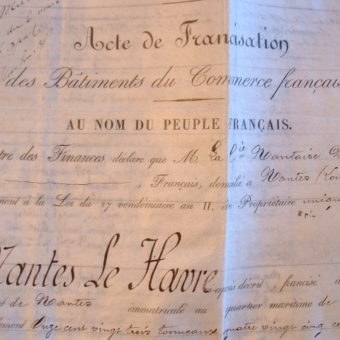 Acte de Francisation
des Bâtiments du Commerce français
AU NOM DU PEUPLE FRANÇAIS.
tre des Finances déclare que M. La Cie Nantaise
, Français, domicilié à Nantes (Loi
ément à la Loi du 27 vendémiaire an II, de Propriétaire unique
Nantes Le Havre
ci-après décrit, francisé a
s de Nantes immatriculé au quartier maritime de
lement Onze cent vingt trois tonneaux quatre vingt cinq c